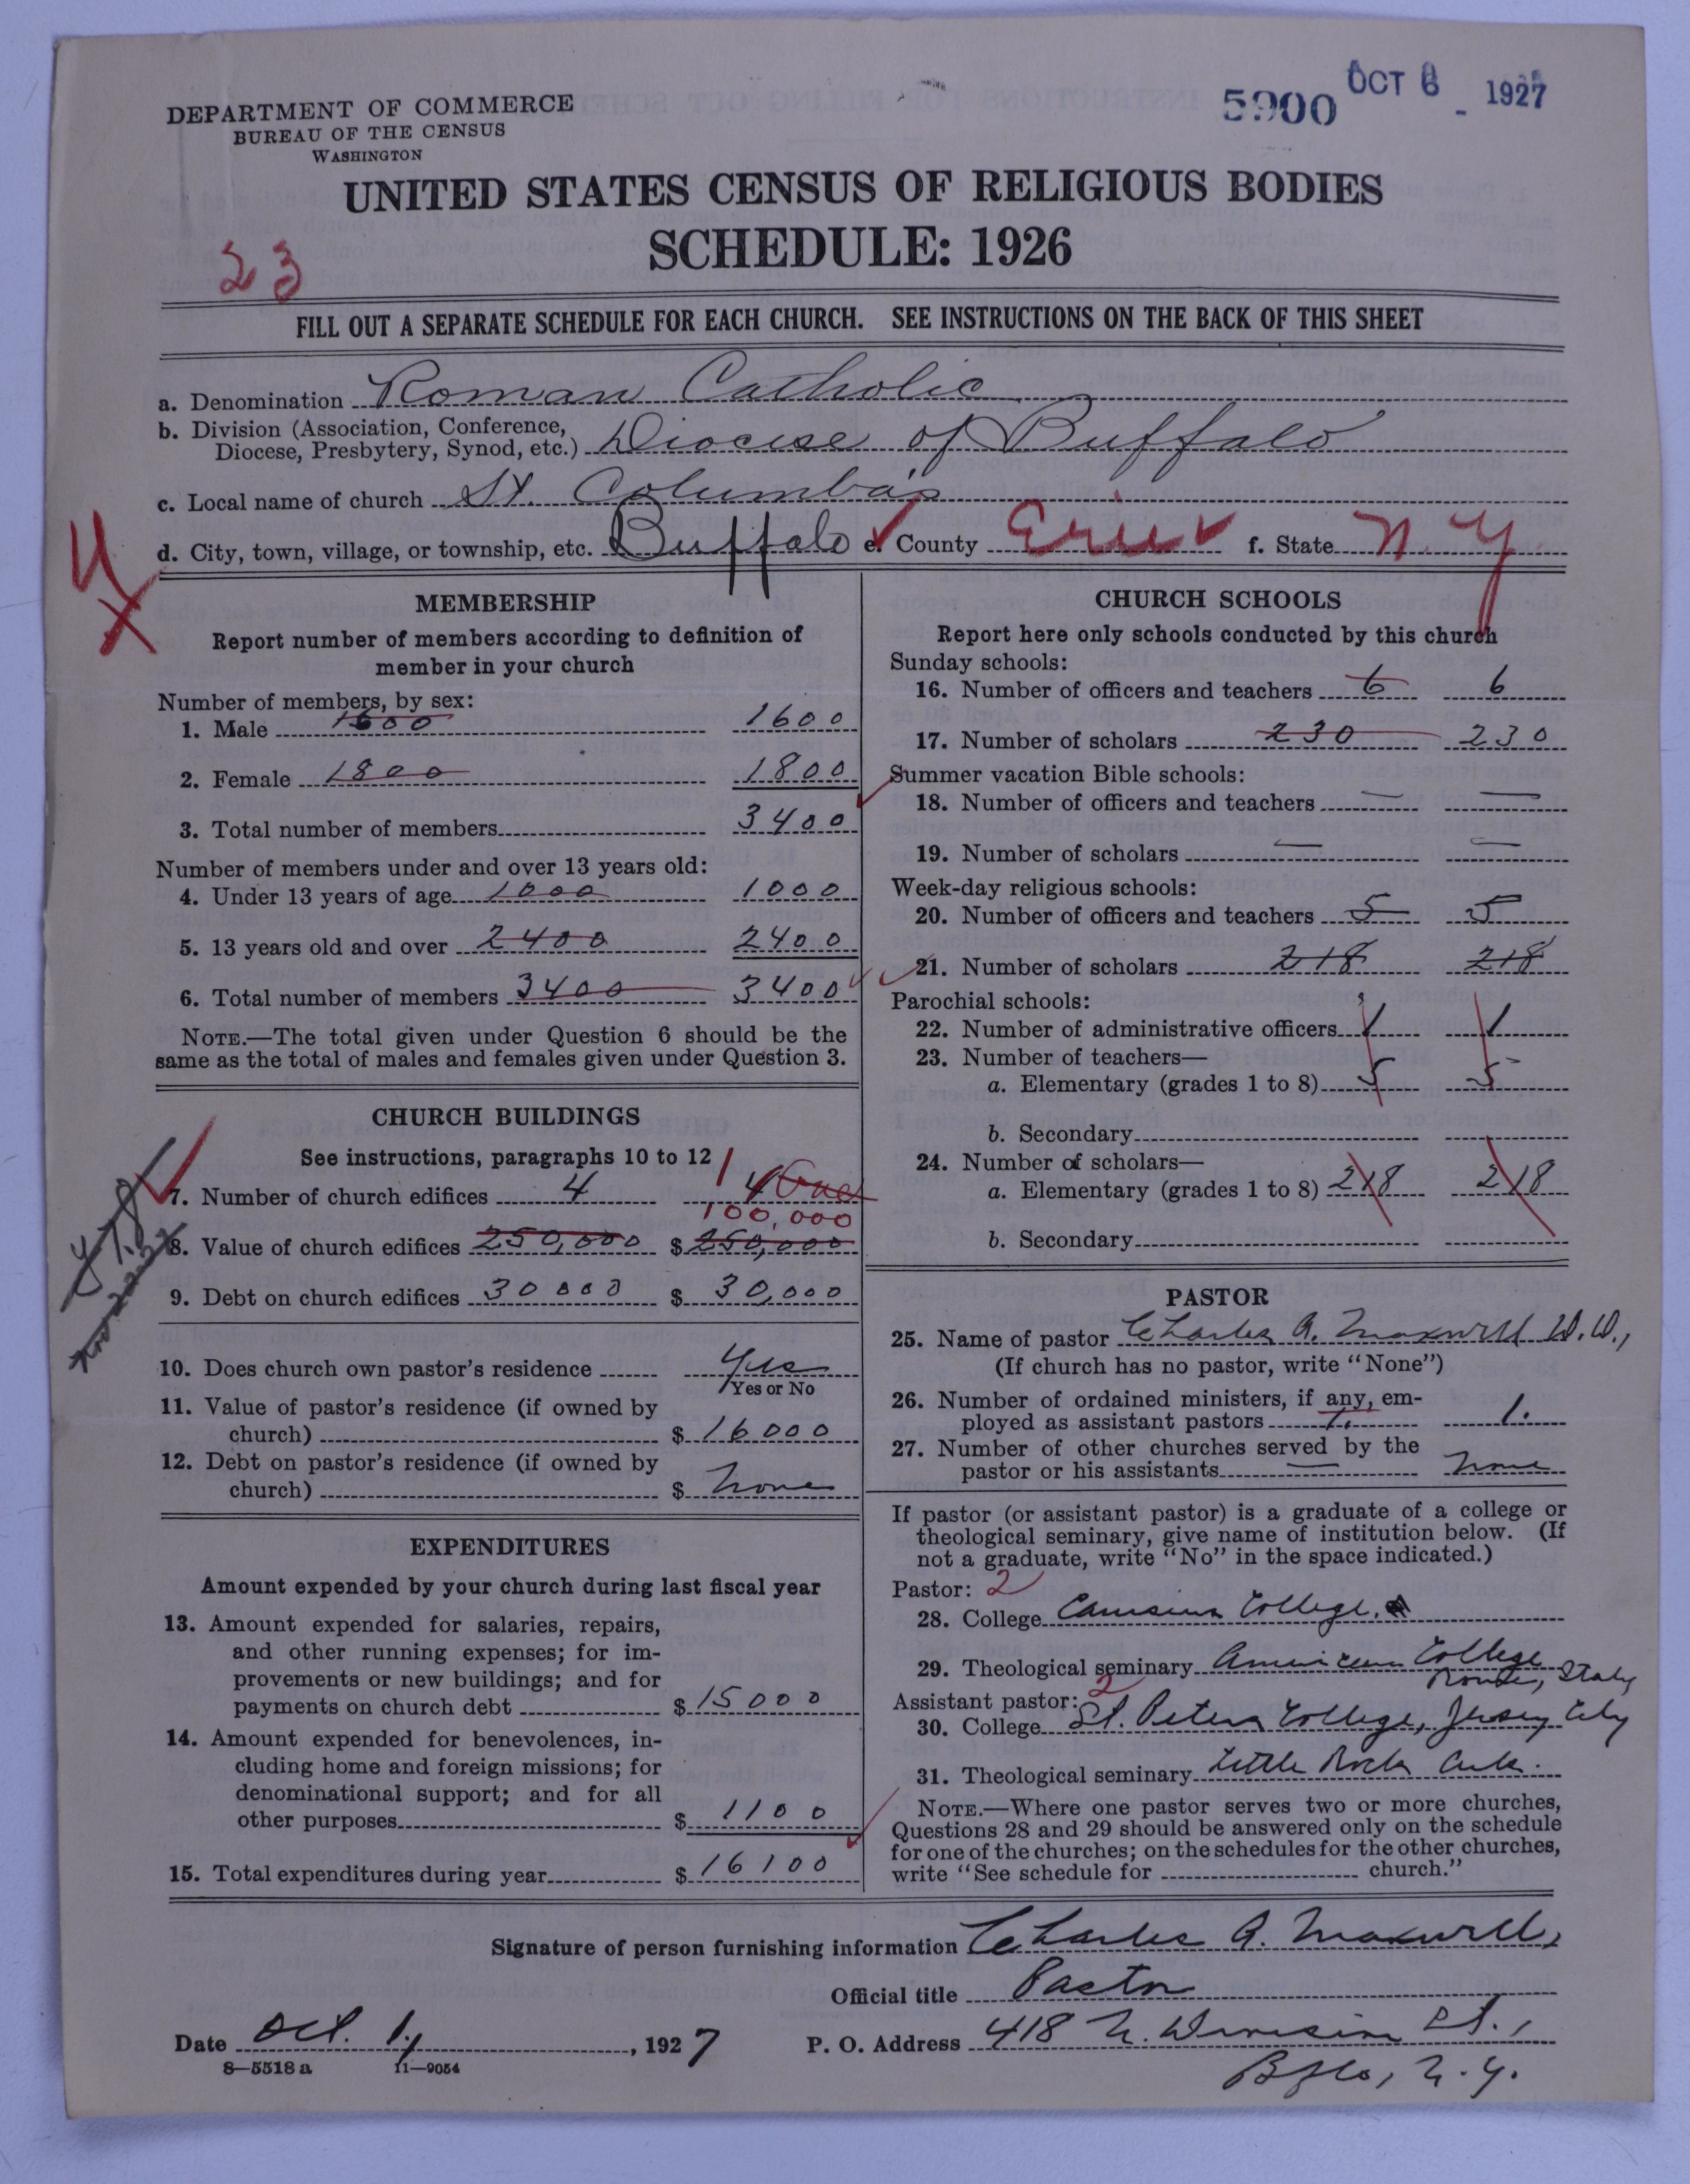 DEPARTMENT OF COMMERCE
BUREAU OF THE CENSUS
WASHINGTON
5900 OCT 6 1927
UNITED STATES CENSUS OF RELIGIOUS BODIES
SCHEDULE: 1926
23
FILL OUT A SEPARATE SCHEDULE FOR EACH CHURCH. SEE INSTRUCTIONS ON THE BACK OF THIS SHEET
a. Denomination Roman Catholic
b. Division (Association, Conference,
Diocese, Presbytery, Synod, etc.) Diocese of Buffalo
c. Local name of church St. Columba's
d. City, town, village, or township, etc. Buffalo e. County Erie f. State N.Y.
MEMBERSHIP
Report number of members according to definition of
member in your church
Number of members, by sex:
1. Male 1600 1600
2. Female 1800 1800
3. Total number of members 3400
Number of members under and over 13 years old:
4. Under 13 years of age 1000 1000
5. 13 years old and over 2400 2400
6. Total number of members 3400 3400
NOTE.—The total given under Question 6 should be the
same as the total of males and females given under Question 3.
CHURCH BUILDINGS
See instructions, paragraphs 10 to 12
7. Number of church edifices 4 4 One 1
100,000
8. Value of church edifices 250,000 $ 250,000
9. Debt on church edifices 30000 $ 30,000
10. Does church own pastor's residence Yes
Yes or No
11. Value of pastor's residence (if owned by
church) $ 16000
12. Debt on pastor's residence (if owned by
church) $ None
EXPENDITURES
Amount expended by your church during last fiscal year
13. Amount expended for salaries, repairs,
and other running expenses; for im-
provements or new buildings; and for
payments on church debt $ 15000
14. Amount expended for benevolences, in-
cluding home and foreign missions; for
denominational support; and for all
other purposes $ 1100
15. Total expenditures during year $ 16100
CHURCH SCHOOLS
Report here only schools conducted by this church
Sunday schools:
16. Number of officers and teachers 6 6
17. Number of scholars 230 230
Summer vacation Bible schools:
18. Number of officers and teachers — —
19. Number of scholars — —
Week-day religious schools:
20. Number of officers and teachers 5 5
21. Number of scholars 218 218
Parochial schools:
22. Number of administrative officers 1 1
23. Number of teachers—
a. Elementary (grades 1 to 8) 5 5
b. Secondary
24. Number of scholars—
a. Elementary (grades 1 to 8) 218 218
b. Secondary
PASTOR
25. Name of pastor Charles A. Maxwell D.D.,
(If church has no pastor, write "None")
26. Number of ordained ministers, if any, em-
ployed as assistant pastors 1. 1.
27. Number of other churches served by the
pastor or his assistants — None
If pastor (or assistant pastor) is a graduate of a college or
theological seminary, give name of institution below. (If
not a graduate, write "No" in the space indicated.)
Pastor: 2
28. College Canisius College.
29. Theological seminary American College
Rome, Italy
Assistant pastor: 2
30. College St. Peters College, Jersey City
31. Theological seminary Little Rock Ark.
NOTE.—Where one pastor serves two or more churches,
Questions 28 and 29 should be answered only on the schedule
for one of the churches; on the schedules for the other churches,
write "See schedule for church."
Signature of person furnishing information Charles A. Maxwell,
Official title Pastor
Date Oct. 1, 1927 P. O. Address 418 N. Division St.,
Bflo, N.Y.
8—5518 a 11—9054